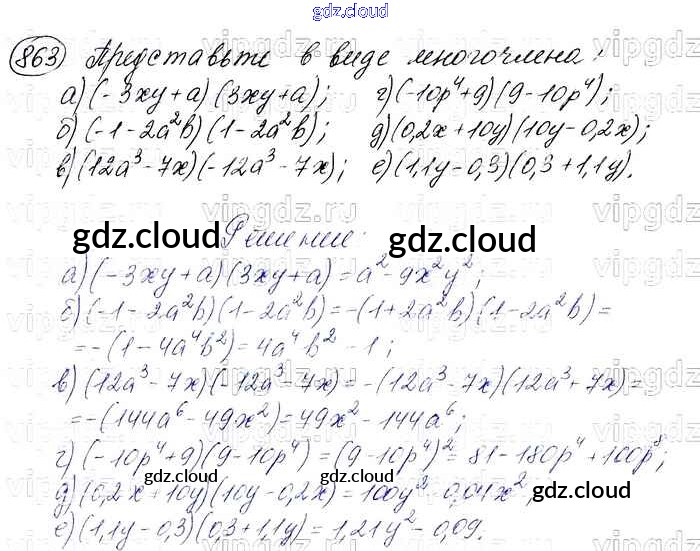 gdz.cloud
863 Представьте в виде многочлена:
а) (-3xy+a)(3xy+a); г) (-10p⁴+9)(9-10p⁴);
б) (-1-2a²b)(1-2a²b); д) (0,2x+10y)(10y-0,2x);
в) (12a³-7x)(-12a³-7x); е) (1,1y-0,3)(0,3+1,1y).
gdz.cloud Решение: gdz.cloud
а) (-3xy+a)(3xy+a)=a²-9x²y²;
б) (-1-2a²b)(1-2a²b)=-(1+2a²b)(1-2a²b)=
=-(1-4a⁴b²)=4a⁴b²-1;
в) (12a³-7x)(-12a³-7x)=-(12a³-7x)(12a³+7x)=
=-(144a⁶-49x²)=49x²-144a⁶;
г) (-10p⁴+9)(9-10p⁴)=(9-10p⁴)²=81-180p⁴+100p⁸;
gdz.cloud gdz.cloud
д) (0,2x+10y)(10y-0,2x)=100y²-0,04x²;
gdz.cloud gdz.cloud
е) (1,1y-0,3)(0,3+1,1y)=1,21y²-0,09.